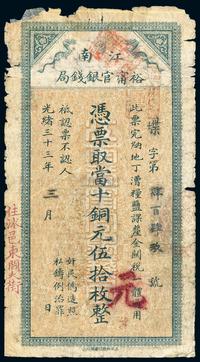 江南
裕甯官銀錢局
此票完納地丁漕糧鹽課釐金關稅一體通用
字第
號
憑票取當十銅元伍拾枚整
祗認票不認人
光緒三十三年三月日
奸民偽造照
私鑄例治罪
元